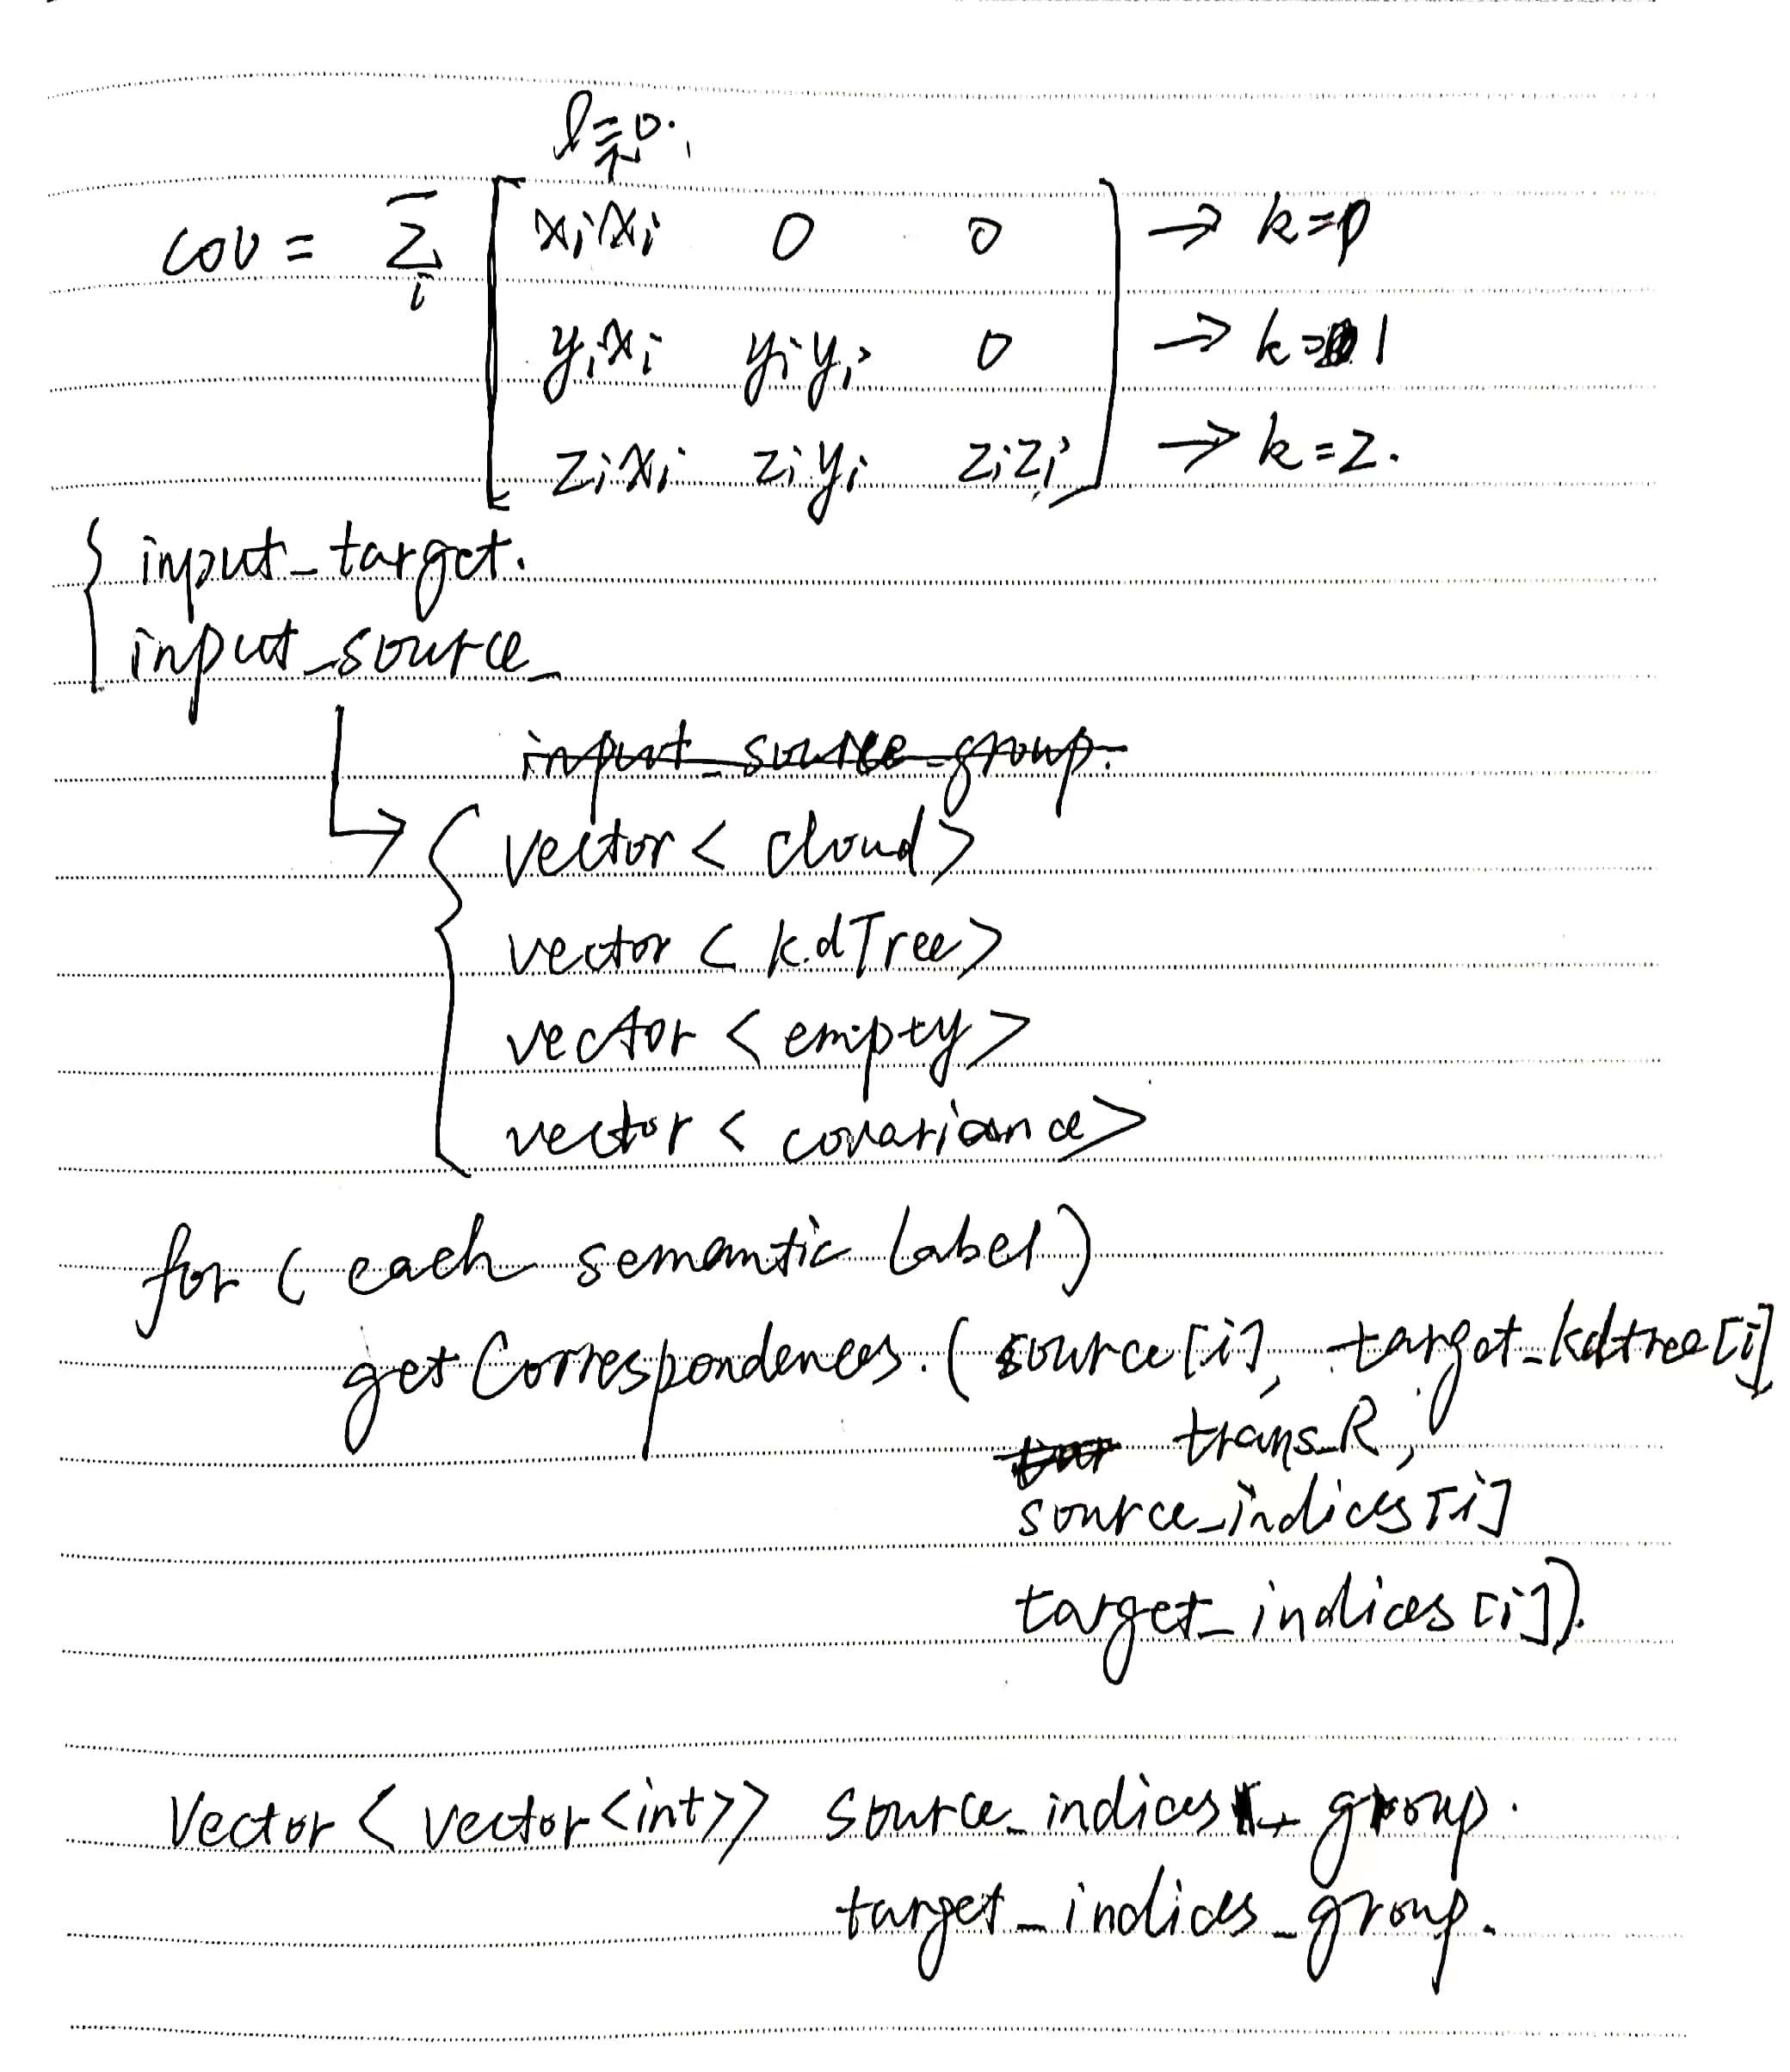 l=0.
cov = Σ_i [ x_i x_i 0 0 ] → k=0
[ y_i x_i y_i y_i 0 ] → k=1
[ z_i x_i z_i y_i z_i z_i ] → k=2.
{ input_target.
input_source_
input_source_group.
↳ { vector < cloud >
vector < kdTree >
vector < empty >
vector < covariance >
for ( each semantic label )
getCorrespondences. ( source[i], target_kdtree[i]
trans_R,
source_indices[i]
target_indices[i]).
Vector < vector <int>> source_indices_group.
target_indices_group.